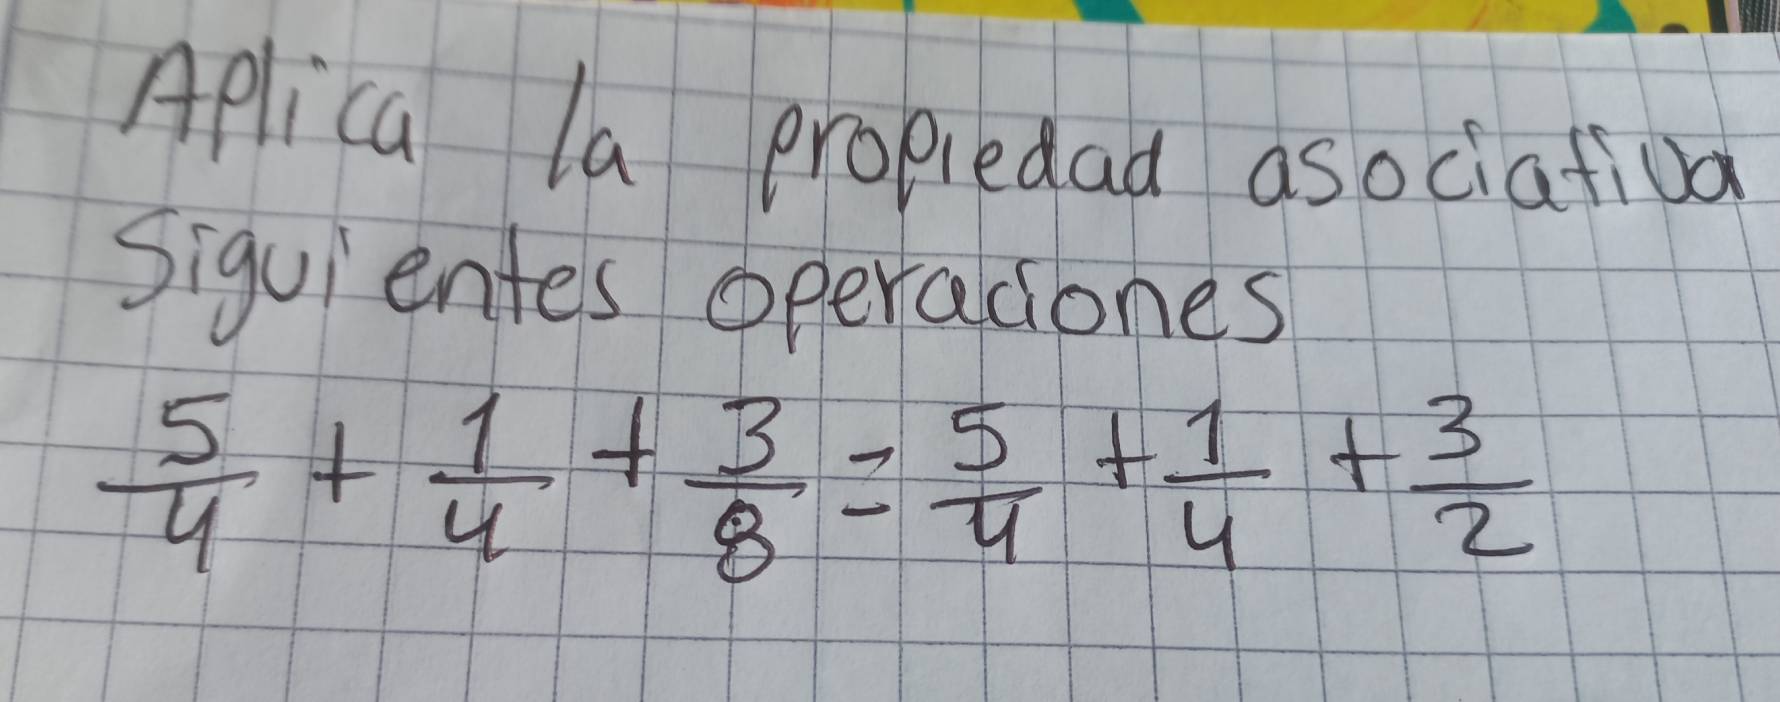 Aplica la propiedad asociativa
Siguientes operaciones
5/4 + 1/4 + 3/8 = 5/4 + 1/4 + 3/2